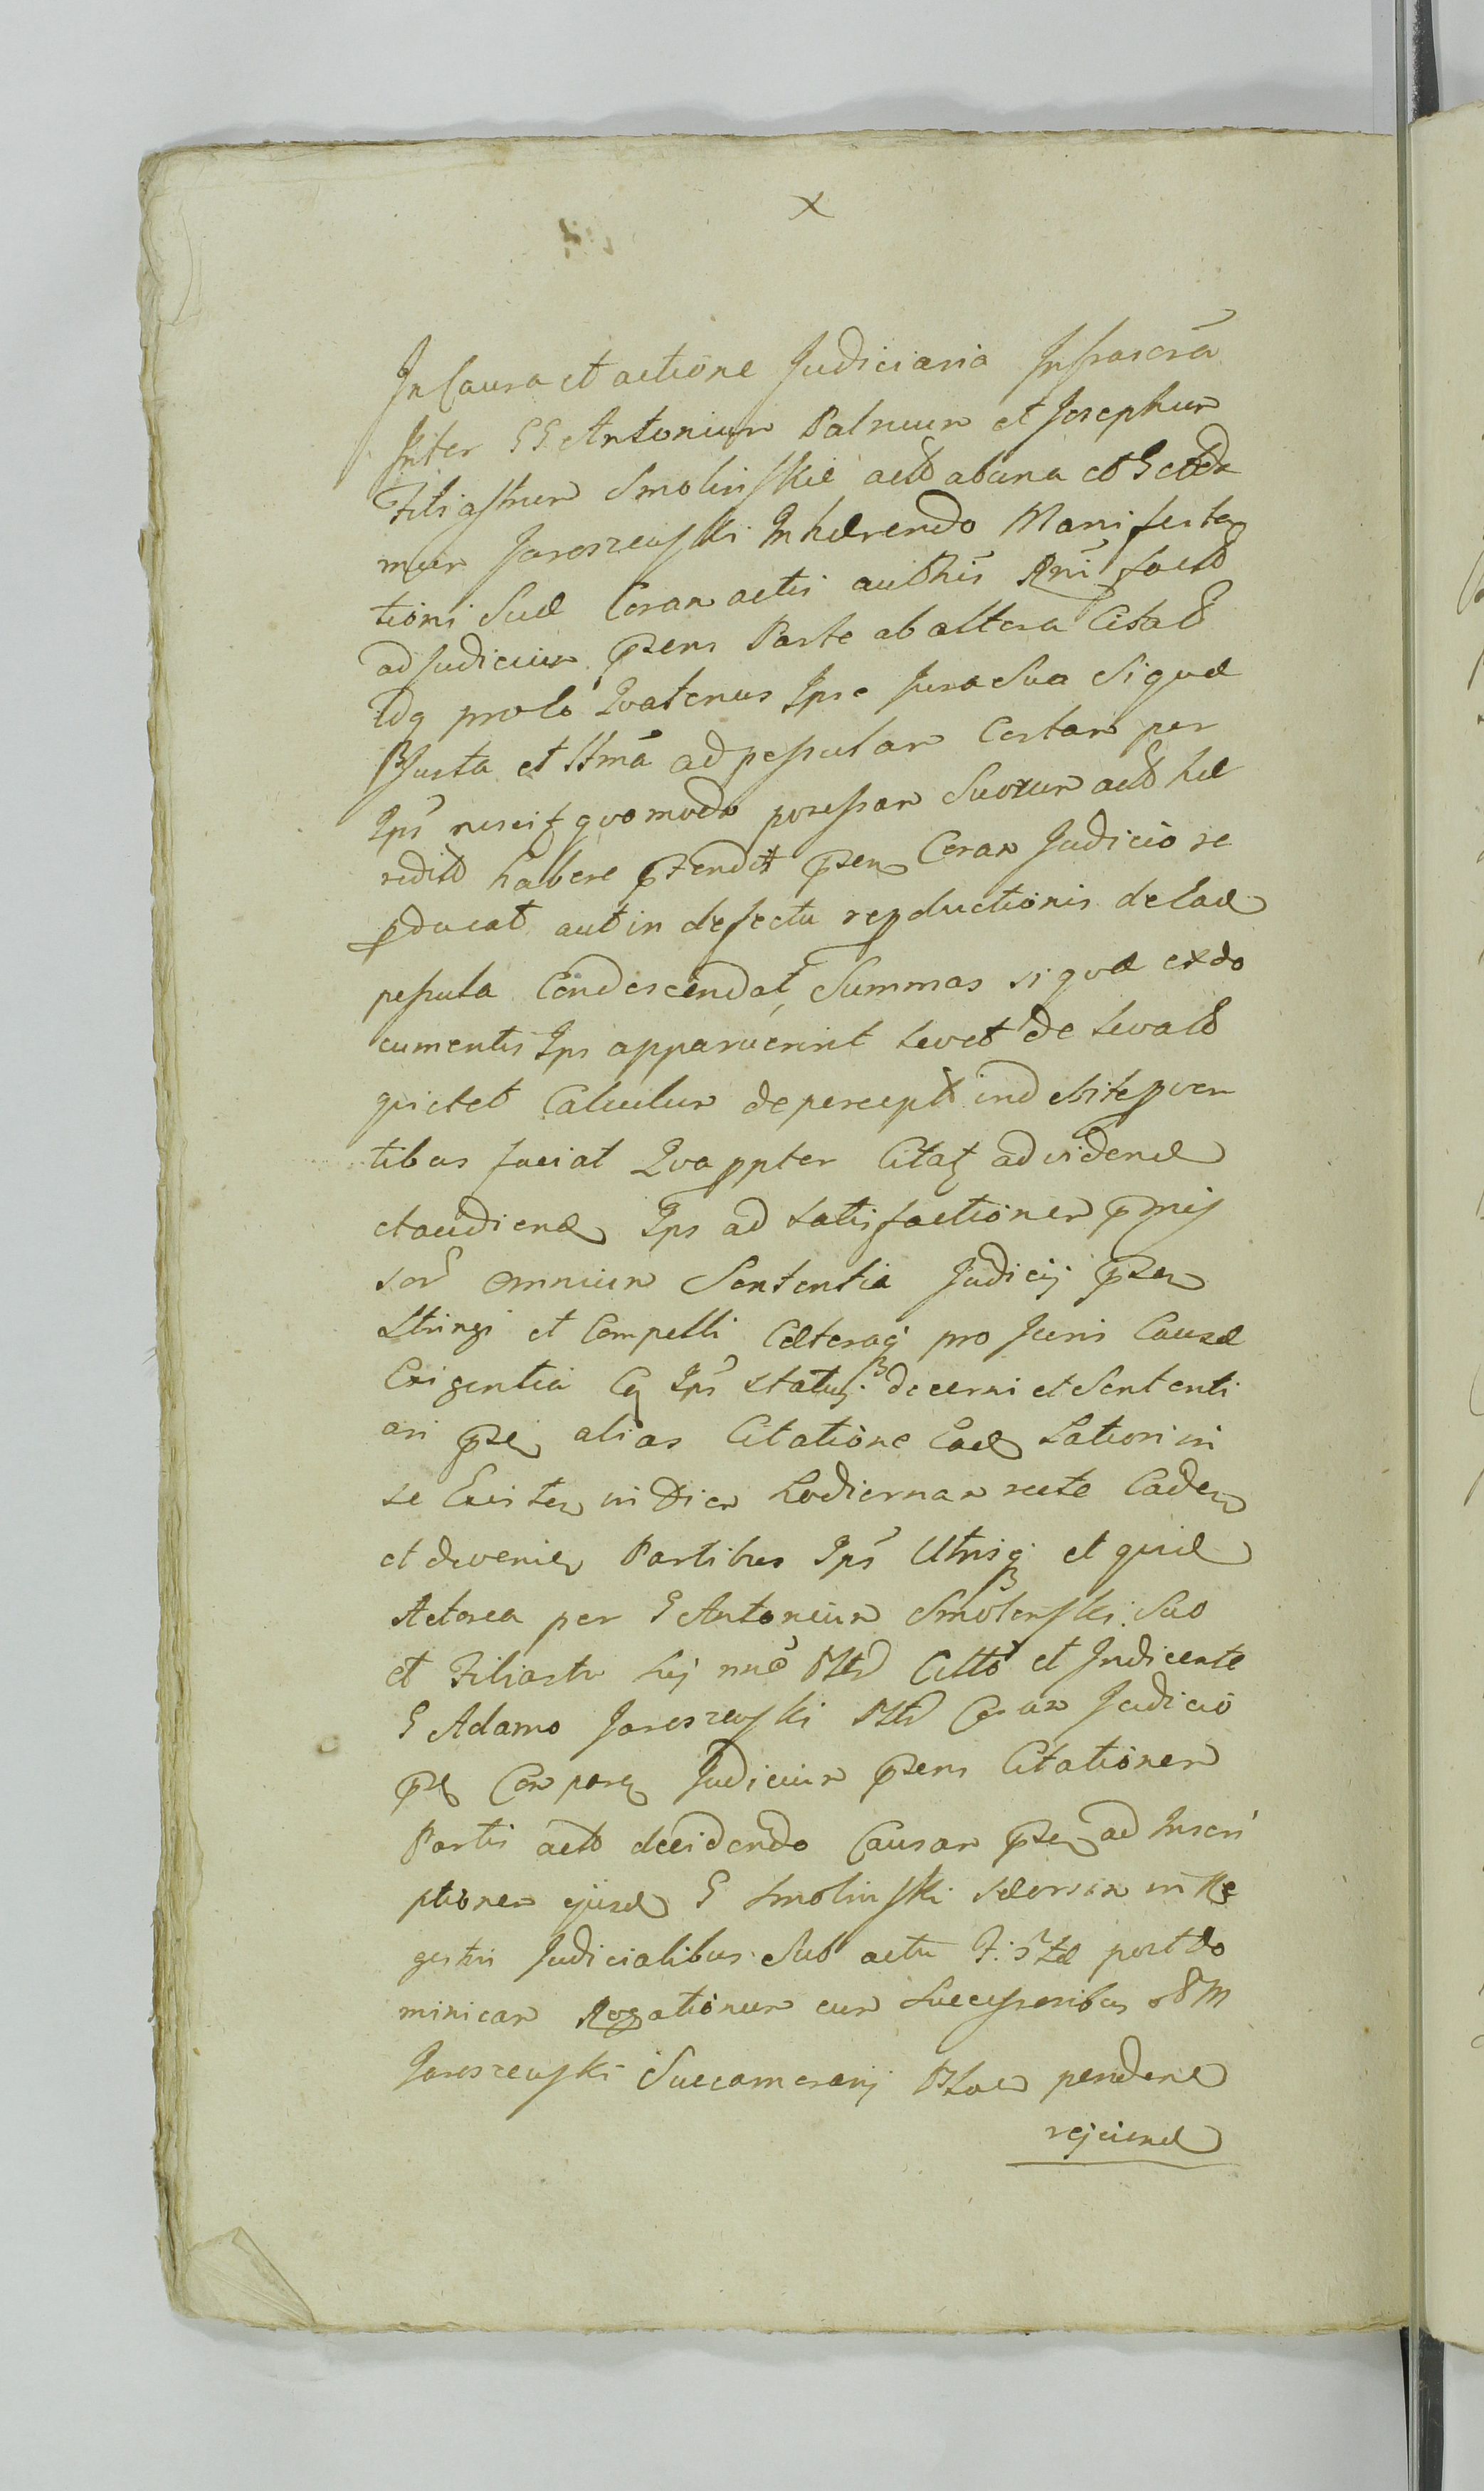 x
In Causa et actione Judiciaria Infrascra
Inter GG Antonium Patruum et Josephum
Filiastrum Smolinskie act ab una et G Ada
mum Jaroszewski Inhærendo Manifesta
tioni Suæ Coram actis authñs fact
ad Judicium pñsens Parte ab altera Citat
Idq Quatenus Ipse Jura Sua Si quæ
Justa et ad pessulam Certam per
Ips nescitq quomodo possessam Suorum act hæ
redit habere ptendit pñsen Coram Judicio re
pducat aut in defectu repductionis de ead
pessula Condescendat, Summas si quæ ex do
cumentis Ips apparuerint levet de levat
quietet Calculum de percept indebite pven
tibus faciat Qva ppter Citat ad vidend
et audiend Ips ad satisfactionem pmis
sor omnium Sententia Judicij pñsen
Stringi et Compelli Cæteraq pro Juris Causæ
Exigentia Ips decerni et Sententi
ari alias Citatione Ead Latiori in
se Existen in Diem hodiernam recte Caden
et devenien Partibus Ips Utrisq et quid
Actorea per G Antonium Smolenski Suo
et Filiastri sui nne Citto et Judicente
G Adamo Jaroszewski Coram Judicio
Compare Judicium pñsens Citationem
Partis act decidendo Causam pñsen ad Inscri
ptionem ejusd G Smolinski in Re
gestris Judicialibus Sub actu post do
minicam Rogationum cum Successoribus olim
Jaroszewski Succamerarij pendend
rejiciend